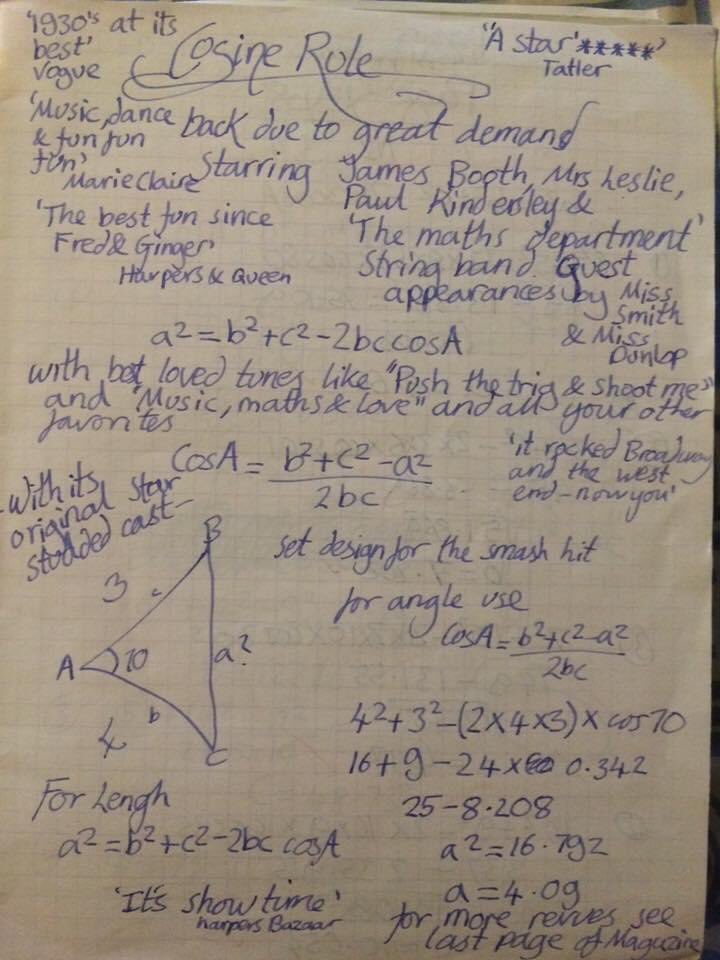 '1930's at its
best'
Vogue
Cosine Rule
"A star'*****'
Tatler
'Music, dance
& fun fun
fun'
Marie Claire
back due to great demand
Starring James Booth, Mrs Leslie,
Paul Kindersley &
'The maths department'
String band. Guest
appearances by Miss
Smith
& Miss
Dunlop
'The best fun since
Fred & Ginger'
Harpers & Queen
a² = b² + c² - 2bc cosA
with best loved tunes like "Push the trig & shoot me"
and "Music, maths & love" and all your other
favorites
CosA = b² + c² - a²
2bc
'it rocked Broadway
and the west
end - now you'
- With its
original star
studded cast -
set design for the smash hit
B
3 c
A 70 a?
b
4
C
for angle use
CosA = b² + c² - a²
2bc
4² + 3² - (2×4×3) × cos 70
16 + 9 - 24 × 0.342
25 - 8.208
a² = 16.792
a = 4.09
For Lengh
a² = b² + c² - 2bc cosA
'It's show time'
harpers Bazaar
for more revives see
last page of Maguzine